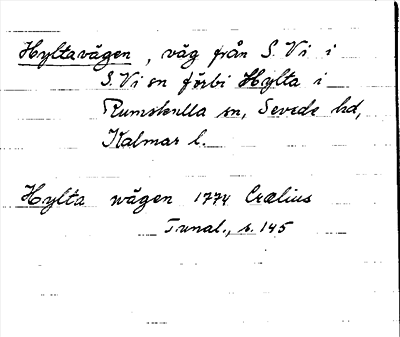 Hyltavägen, väg från S. Vi i
S. Vi sn förbi Hylta i
Rumskulla sn, Sevede hd,
Kalmar l.
Hylta wägen 1774 Crælius
Tunal., s. 145